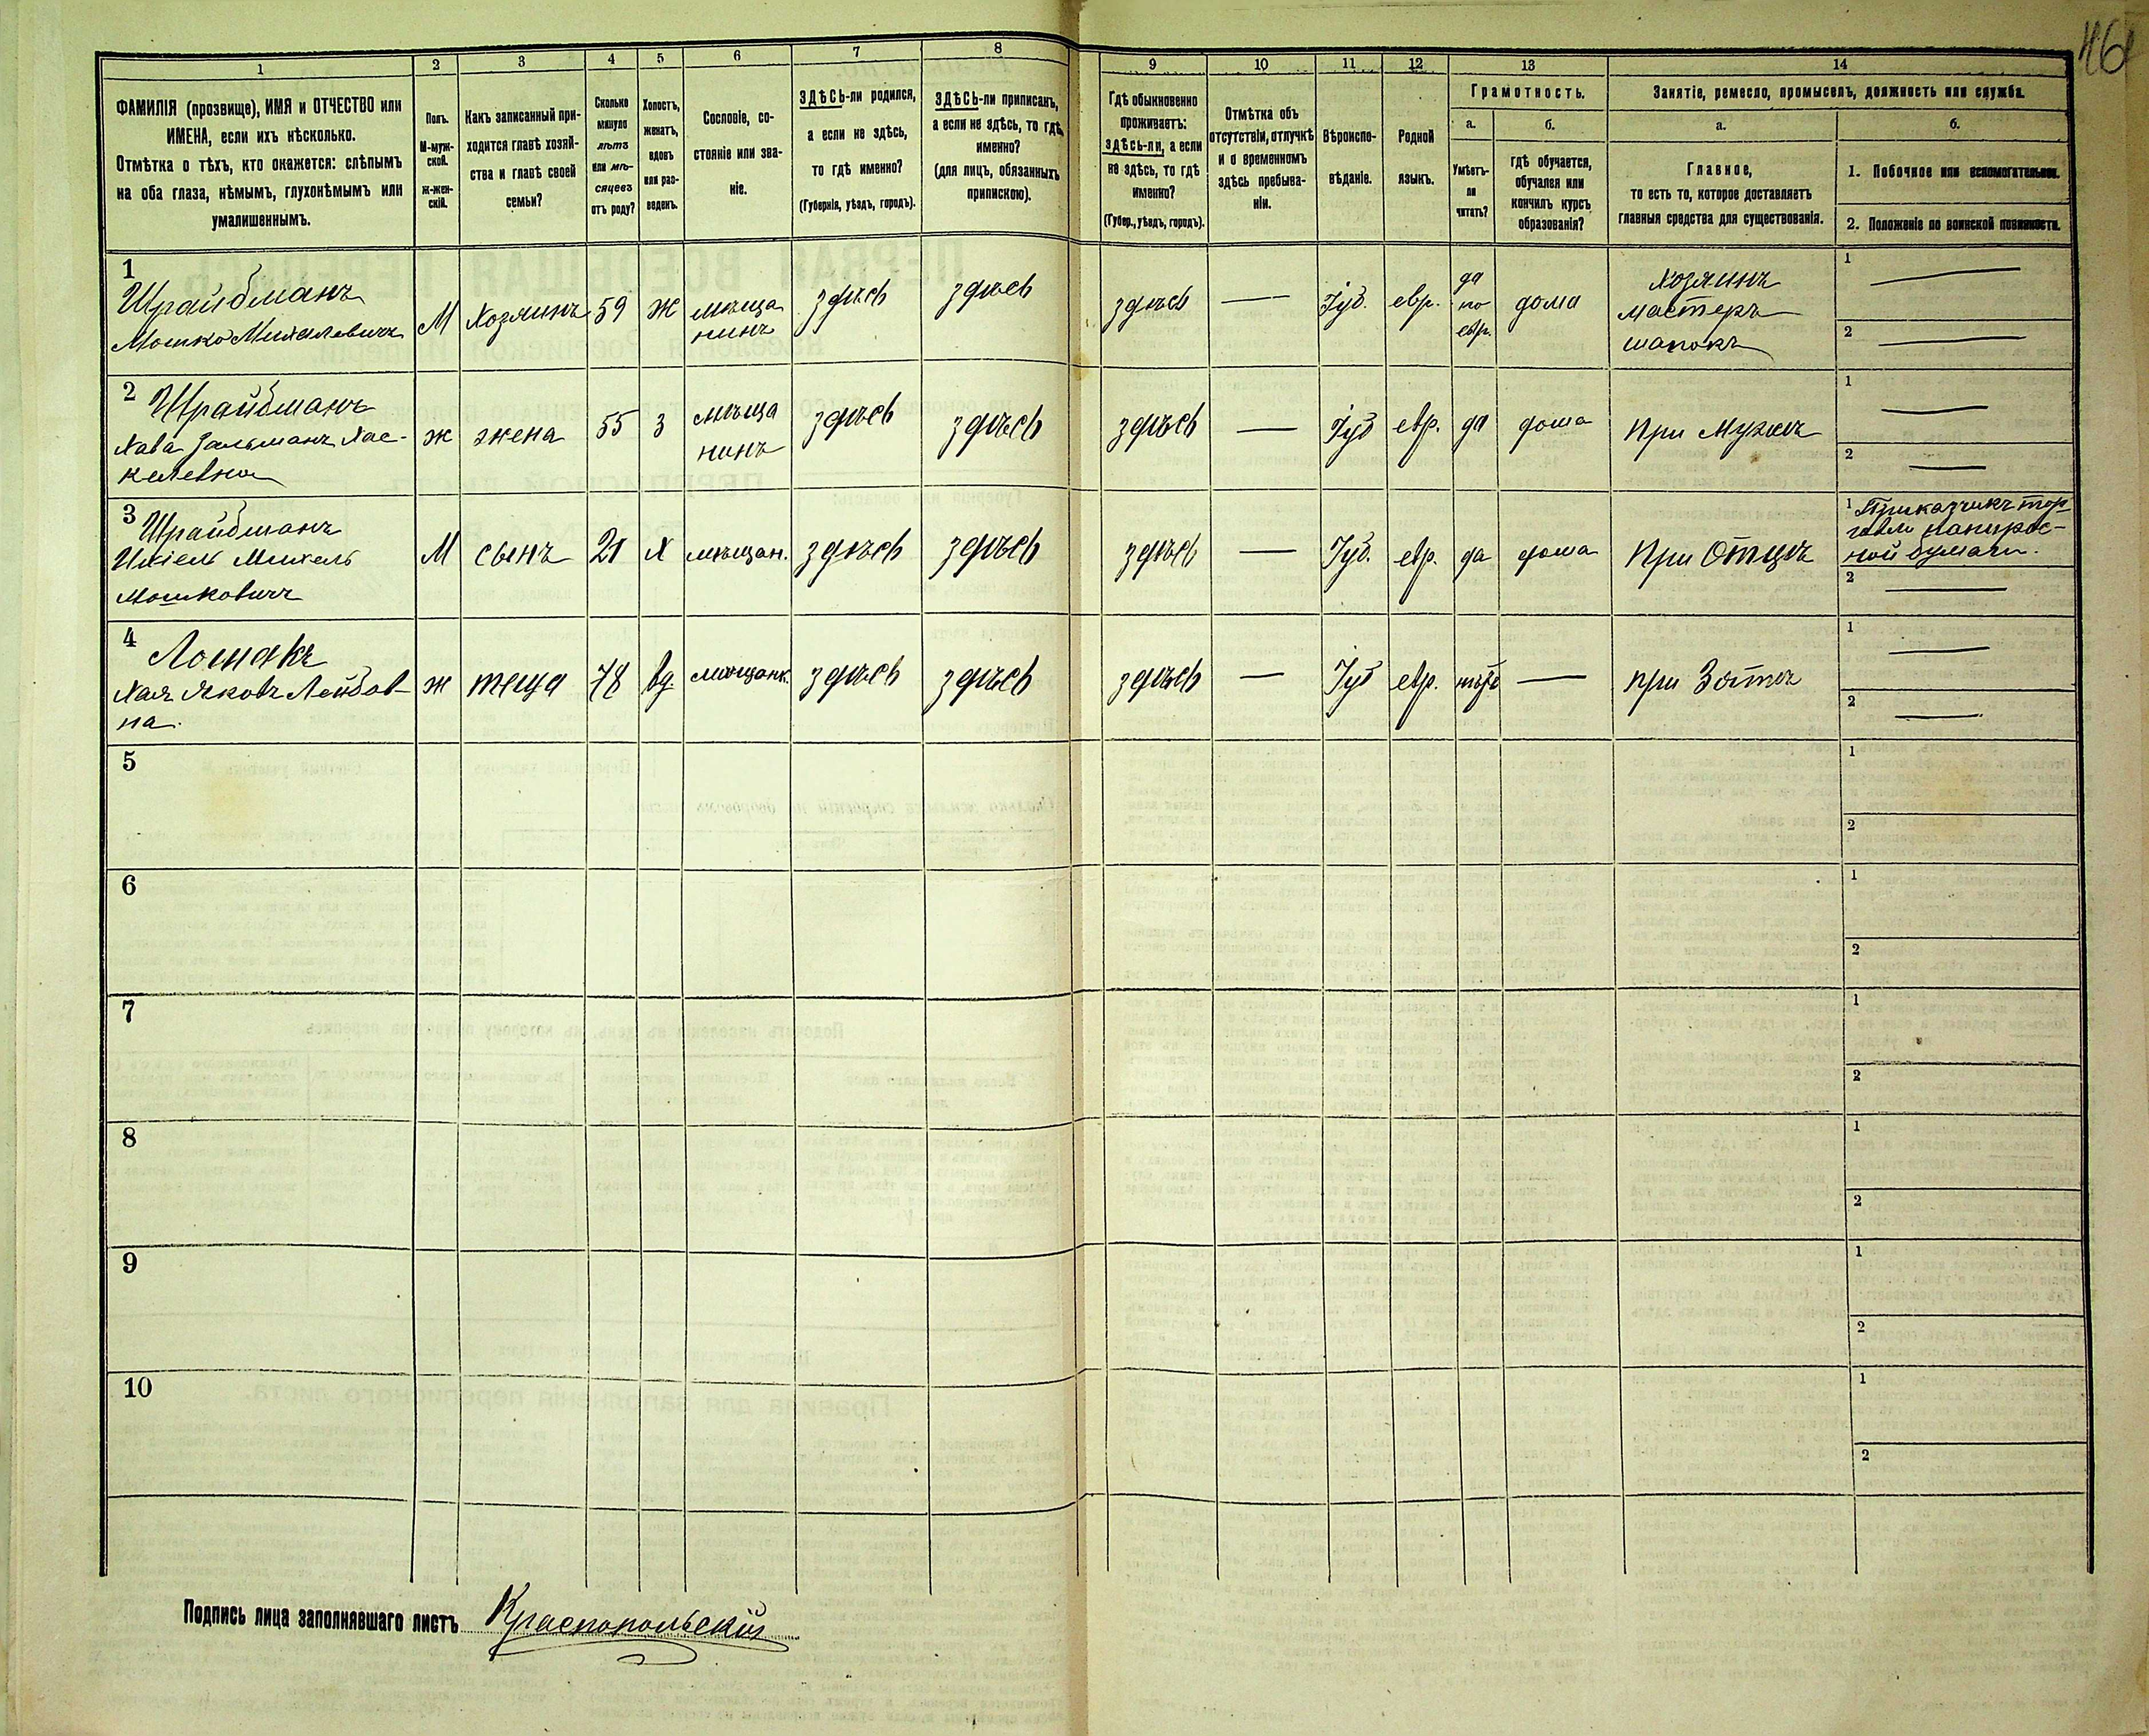 461
1
2
3
4
5
6
7
8
9
10
11
12
13
14
ФАМИЛІЯ (прозвище), ИМЯ и ОТЧЕСТВО или
ИМЕНА, если ихъ нѣсколько.
Отмѣтка о тѣхъ, кто окажется: слѣпымъ
на оба глаза, нѣмымъ, глухонѣмымъ или
умалишеннымъ.
Полъ.
М-муж-
ской.
ж-жен-
скій.
Какъ записанный при-
ходится главѣ хозяй-
ства и главѣ своей
семьи?
Сколько
минуло
лѣтъ
или мѣ-
сяцевъ
отъ роду?
Холостъ,
женатъ,
вдовъ
или раз-
веденъ.
Сословіе, со-
стояніе или зва-
ніе.
ЗДѢСЬ-ли родился,
а если не здѣсь,
то гдѣ именно?
(Губернія, уѣздъ, городъ).
ЗДѢСЬ-ли приписанъ,
а если не здѣсь, то гдѣ
именно?
(для лицъ, обязанныхъ
припискою).
Гдѣ обыкновенно
проживаетъ:
здѣсь-ли, а если
не здѣсь, то гдѣ
именно?
(Губер., уѣздъ, городъ).
Отмѣтка объ
отсутствіи, отлучкѣ
и о временномъ
здѣсь пребыва-
ніи.
Вѣроиспо-
вѣданіе.
Родной
языкъ.
Грамотность.
а.
б.
Умѣетъ-
ли
читать?
гдѣ обучается,
обучался или
кончилъ курсъ
образованія?
Занятіе, ремесло, промыселъ, должность или служба.
а.
б.
Главное,
то есть то, которое доставляетъ
главныя средства для существованія.
1. Побочное или вспомогательное.
2. Положеніе по воинской повинности.
1
Шрайбманъ
Мошко Михалевичъ
М
Хозяинъ
59
Ж
мѣща
нинъ
здѣсь
здѣсь
здѣсь
—
Іуд.
евр.
да
по
евр.
дома
Хозяинъ
мастеръ
шапокъ
1
—
2
—
2
Шрайбманъ
Хава Зальманъ Хас-
келевна
ж
жена
55
З
мѣща
нинъ
здѣсь
здѣсь
здѣсь
—
Іуд
евр.
да
дома
При Мужѣ
1
—
2
—
3
Шрайбманъ
Ихіель Михель
Мошковичъ
М
сынъ
21
Х
мѣщан.
здѣсь
здѣсь
здѣсь
—
Іуд.
евр.
да
дома
При Отцѣ
1 Приказчикъ тор-
говли папирос-
ной бумаги.
2
—
4
Лошакъ
Хая Яковъ Лейбов-
на.
ж
теща
78
вд
мѣщанк.
здѣсь
здѣсь
здѣсь
—
Іуд
евр.
нѣтъ
—
при Зятѣ
1
—
2
—
5
1
2
6
1
2
7
1
2
8
1
2
9
1
2
10
1
2
Подпись лица заполнявшаго листъ Краснопольскій